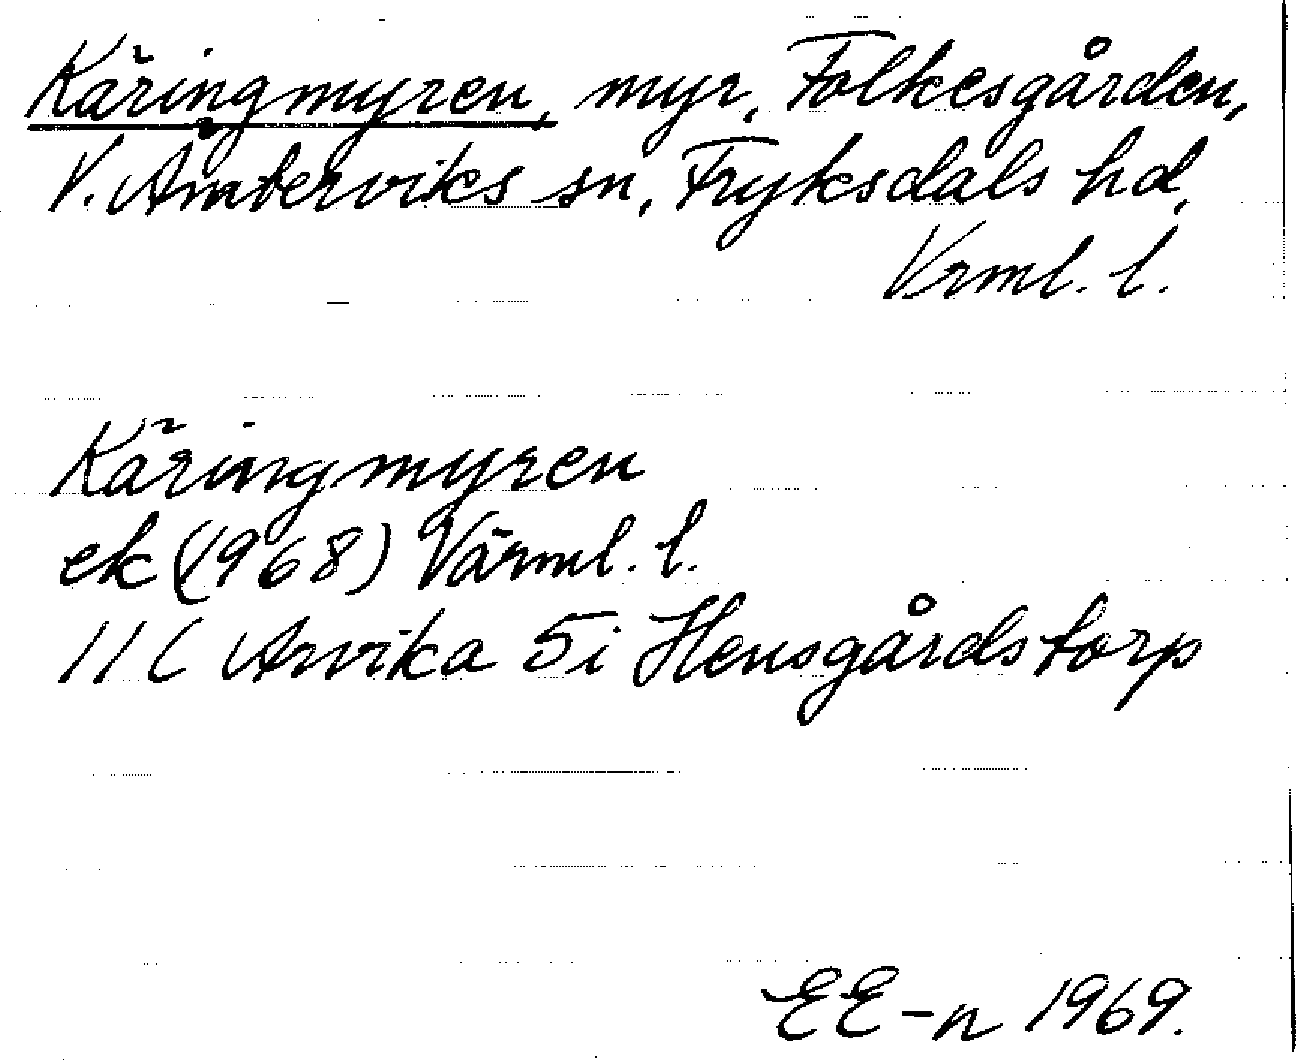 Käringmyren, myr, Folkesgården,
V. Ämterviks sn, Fryksdals hd,
Vrml. l.
Käringmyren
ek (1968) Värml. l.
11 C Arvika 5i Hensgårdstorp
EE-n 1969.